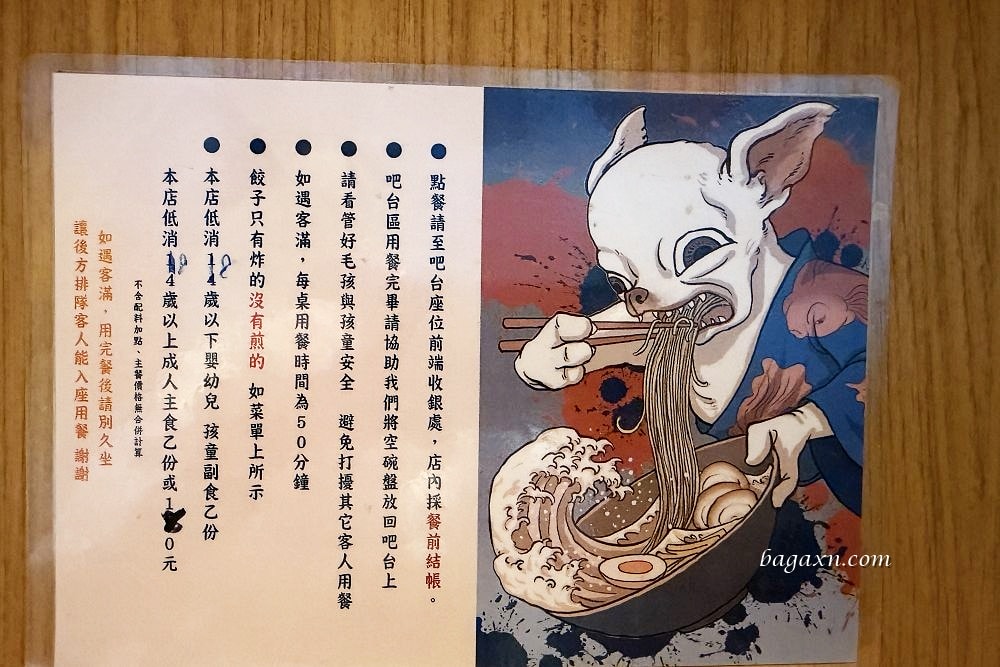 ● 點餐請至吧台座位前端收銀處，店內採餐前結帳。
● 吧台區用餐完畢請協助我們將空碗盤放回吧台上
● 請看管好毛孩與孩童安全 避免打擾其它客人用餐
● 如遇客滿，每桌用餐時間為50分鐘
● 餃子只有炸的沒有煎的 如菜單上所示
● 本店低消 歲以下嬰幼兒 孩童副食乙份
本店低消 歲以上成人主食乙份或 元
不含配料加點、主餐價格無合併計算
如遇客滿，用完餐後請別久坐
讓後方排隊客人能入座用餐 謝謝
bagaxn.com